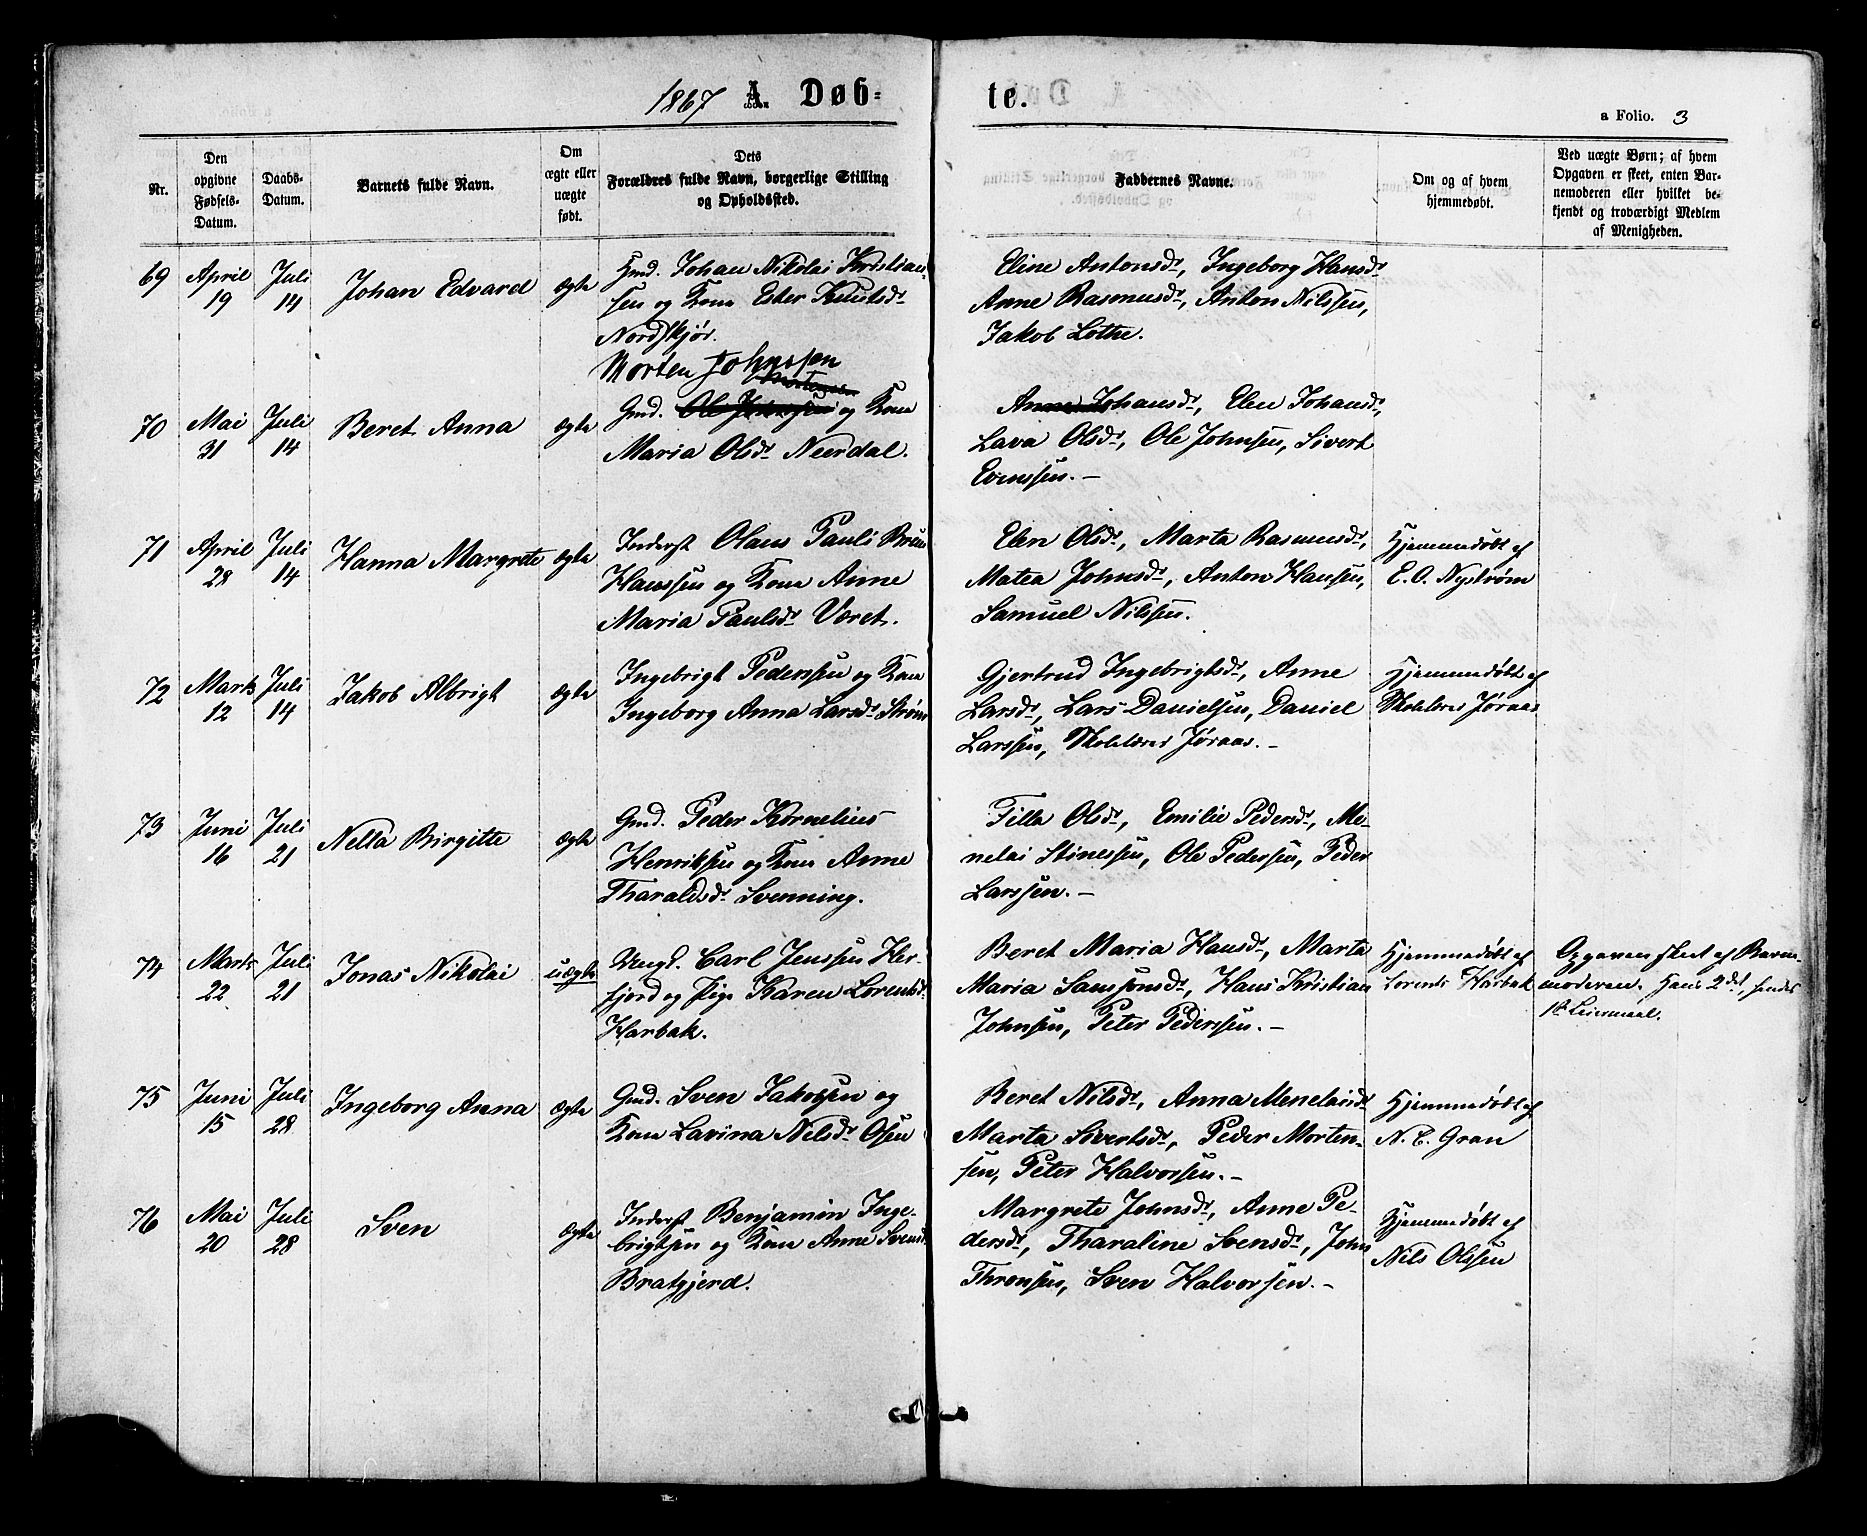 1867 A. Døb-
te.
a Folio. 3
Nr.
Den opgivne Fødsels-Datum.
Daabs-Datum.
Barnets fulde Navn.
Om ægte eller uægte født.
Dets Forældres fulde Navn, borgerlige Stilling og Opholdssted.
Faddernes Navne.
Om og af hvem hjemmedøbt.
Ved uægte Børn; af hvem Opgaven er skeet, enten Barnemoderen eller hvilket bekjendt og troværdigt Medlem af Menigheden.
69 April 19 Juli 14 Johan Edvard ægte
Gmd. Johan Nikolai Kristian-
sen og Kone Ester Knutsdr
Nordskjør.
Eline Antonsdr, Ingeborg Hansdr
Anne Rasmusdr, Anton Nilssen,
Jakob Lothe.
70 Mai 31 Juli 14 Beret Anna ægte
Morten Johnssen
Gmd. Ole Johnssen og Kone
Maria Olsdr Neerdal.
Anne Johansdr, Elen Johansdr,
Lava Olsdr, Ole Johnsen, Sivert
Evenssen. –
71 April 28 Juli 14 Hanna Margrete ægte
Inderst Olaus Pauli Bruun
Hanssen og Kone Anne
Maria Paulsdr Været.
Elen Olsdr, Marta Rasmusdr,
Matea Johnsdr, Anton Hansen,
Samuel Nilssen.
Hjemmedøbt af
E. O. Nystrøm
72 Marts 12 Juli 14 Jakob Albrigt ægte
Ingebrigt Pederssen og Kone
Ingeborg Anna Larsdr Strøm
Gjertrud Ingebrigtsdr, Anne
Larsdr, Lars Danielsen, Daniel
Larssen, Skolelærer Jøraas. –
Hjemmedøbt af
Skolelærer Jøraas
73 Juni 16 Juli 21 Nella Birgitte ægte
Gmd. Peder Kornelius
Henriksen og Kone Anne
Tharaldsdr Svenning.
Tilla Olsdr, Emilie Pedersdr, Me-
nelai Stinessen, Ole Pedersen, Peder
Larssen. –
74 Marts 22 Juli 21 Jonas Nikolai uægte
Ungk. Carl Jenssen Her-
fjord og Pige Karen Lorentsdr
Harbak.
Beret Maria Hansdr, Marta
Maria Samsonsdr, Hans Kristian
Johnsen, Peter Pederssen. –
Hjemmedøbt af
Lorents Harbak
Opgaven skeet af Barne-
moderen. Hans 2det, hendes
1ste Leiermaal.
75 Juni 15 Juli 28 Ingeborg Anna ægte
Gmd. Sven Jakobsen og
Kone Lavina Nilsdr Osen
Beret Nilsdr, Anna Menelaisdr
Marta Sivertsdr, Peder Morten-
sen, Peter Halvorsen. –
Hjemmedøbt af
N. C. Gran
76 Mai 20 Juli 28 Sven ægte
Inderst Benjamin Inge-
brigtsen og Kone Anne Svensdr
Bratgjerd.
Margrete Johnsdr, Anne Pe-
dersdr, Tharaline Svensdr, John
Thronsen, Sven Halvorsen. –
Hjemmedøbt af
Nils Olssen